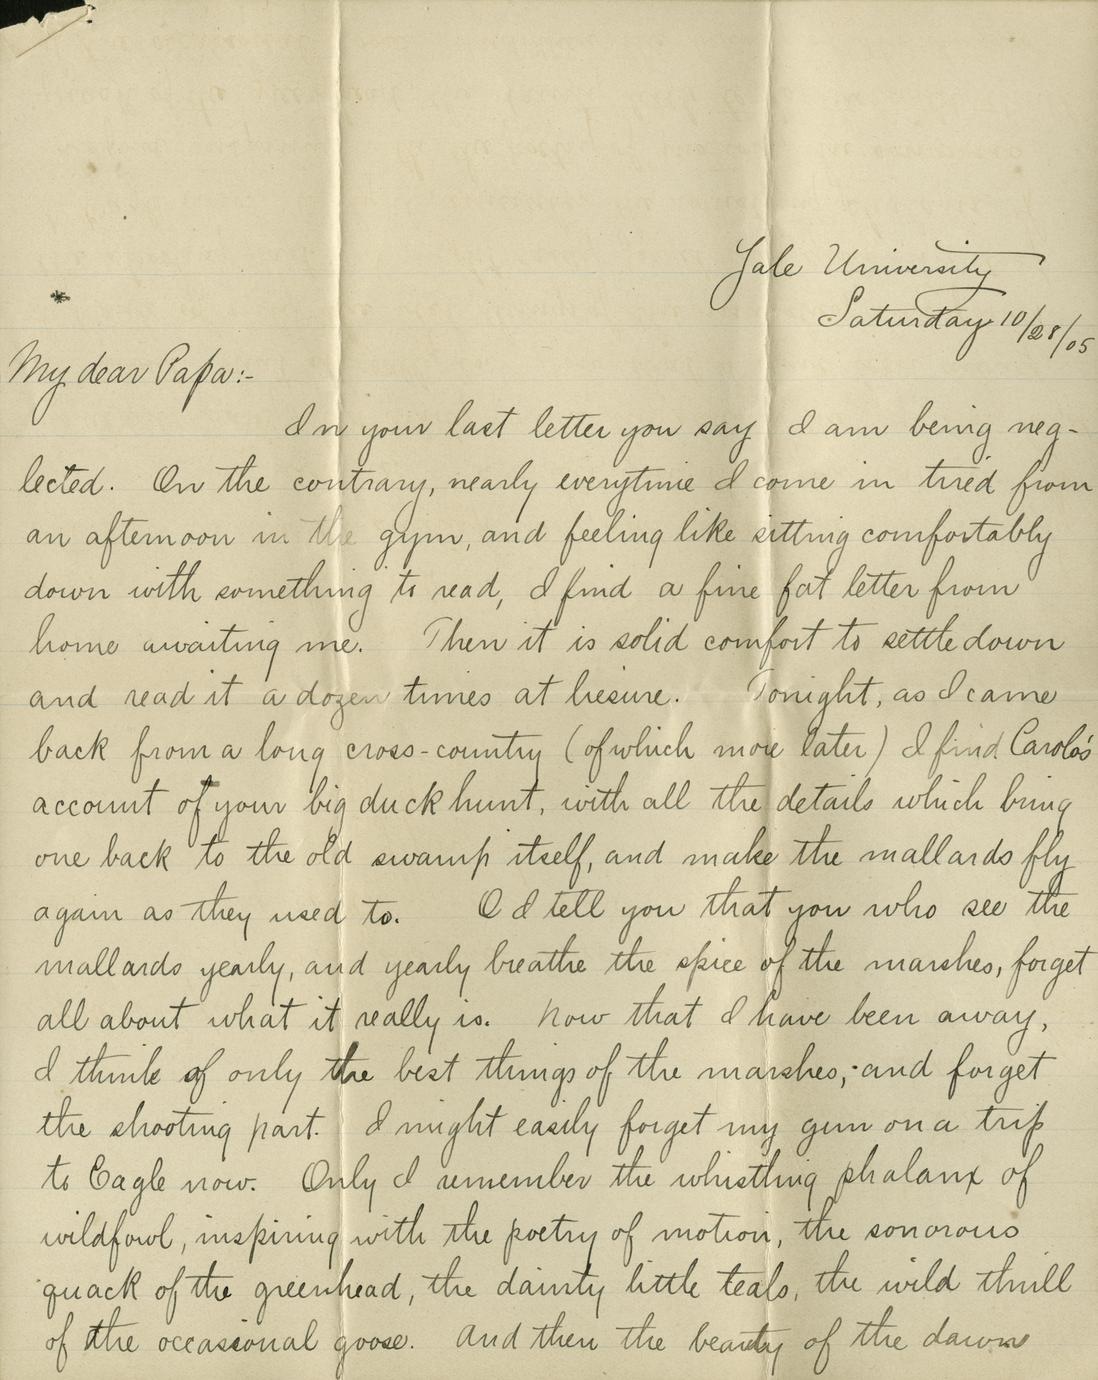 Yale University
Saturday 10/28/05
My dear Papa:-
In your last letter you say I am being neg-
lected. On the contrary, nearly everytime I come in tired from
an afternoon in the gym, and feeling like sitting comfortably
down with something to read, I find a fine fat letter from
home awaiting me. Then it is solid comfort to settle down
and read it a dozen times at liesure. Tonight, as I came
back from a long cross-country (of which more later) I find Carolo's
account of your big duck hunt, with all the details which bring
one back to the old swamp itself, and make the mallards fly
again as they used to. O I tell you that you who see the
mallards yearly, and yearly breathe the spice of the marshes, forget
all about what it really is. Now that I have been away,
I think of only the best things of the marshes, and forget
the shooting part. I might easily forget my gun on a trip
to Eagle now. Only I remember the whistling phalanx of
wildfowl, inspiring with the poetry of motion, the sonorous
quack of the greenhead, the dainty little teals, the wild thrill
of the occassional goose. And then the beauty of the dawns